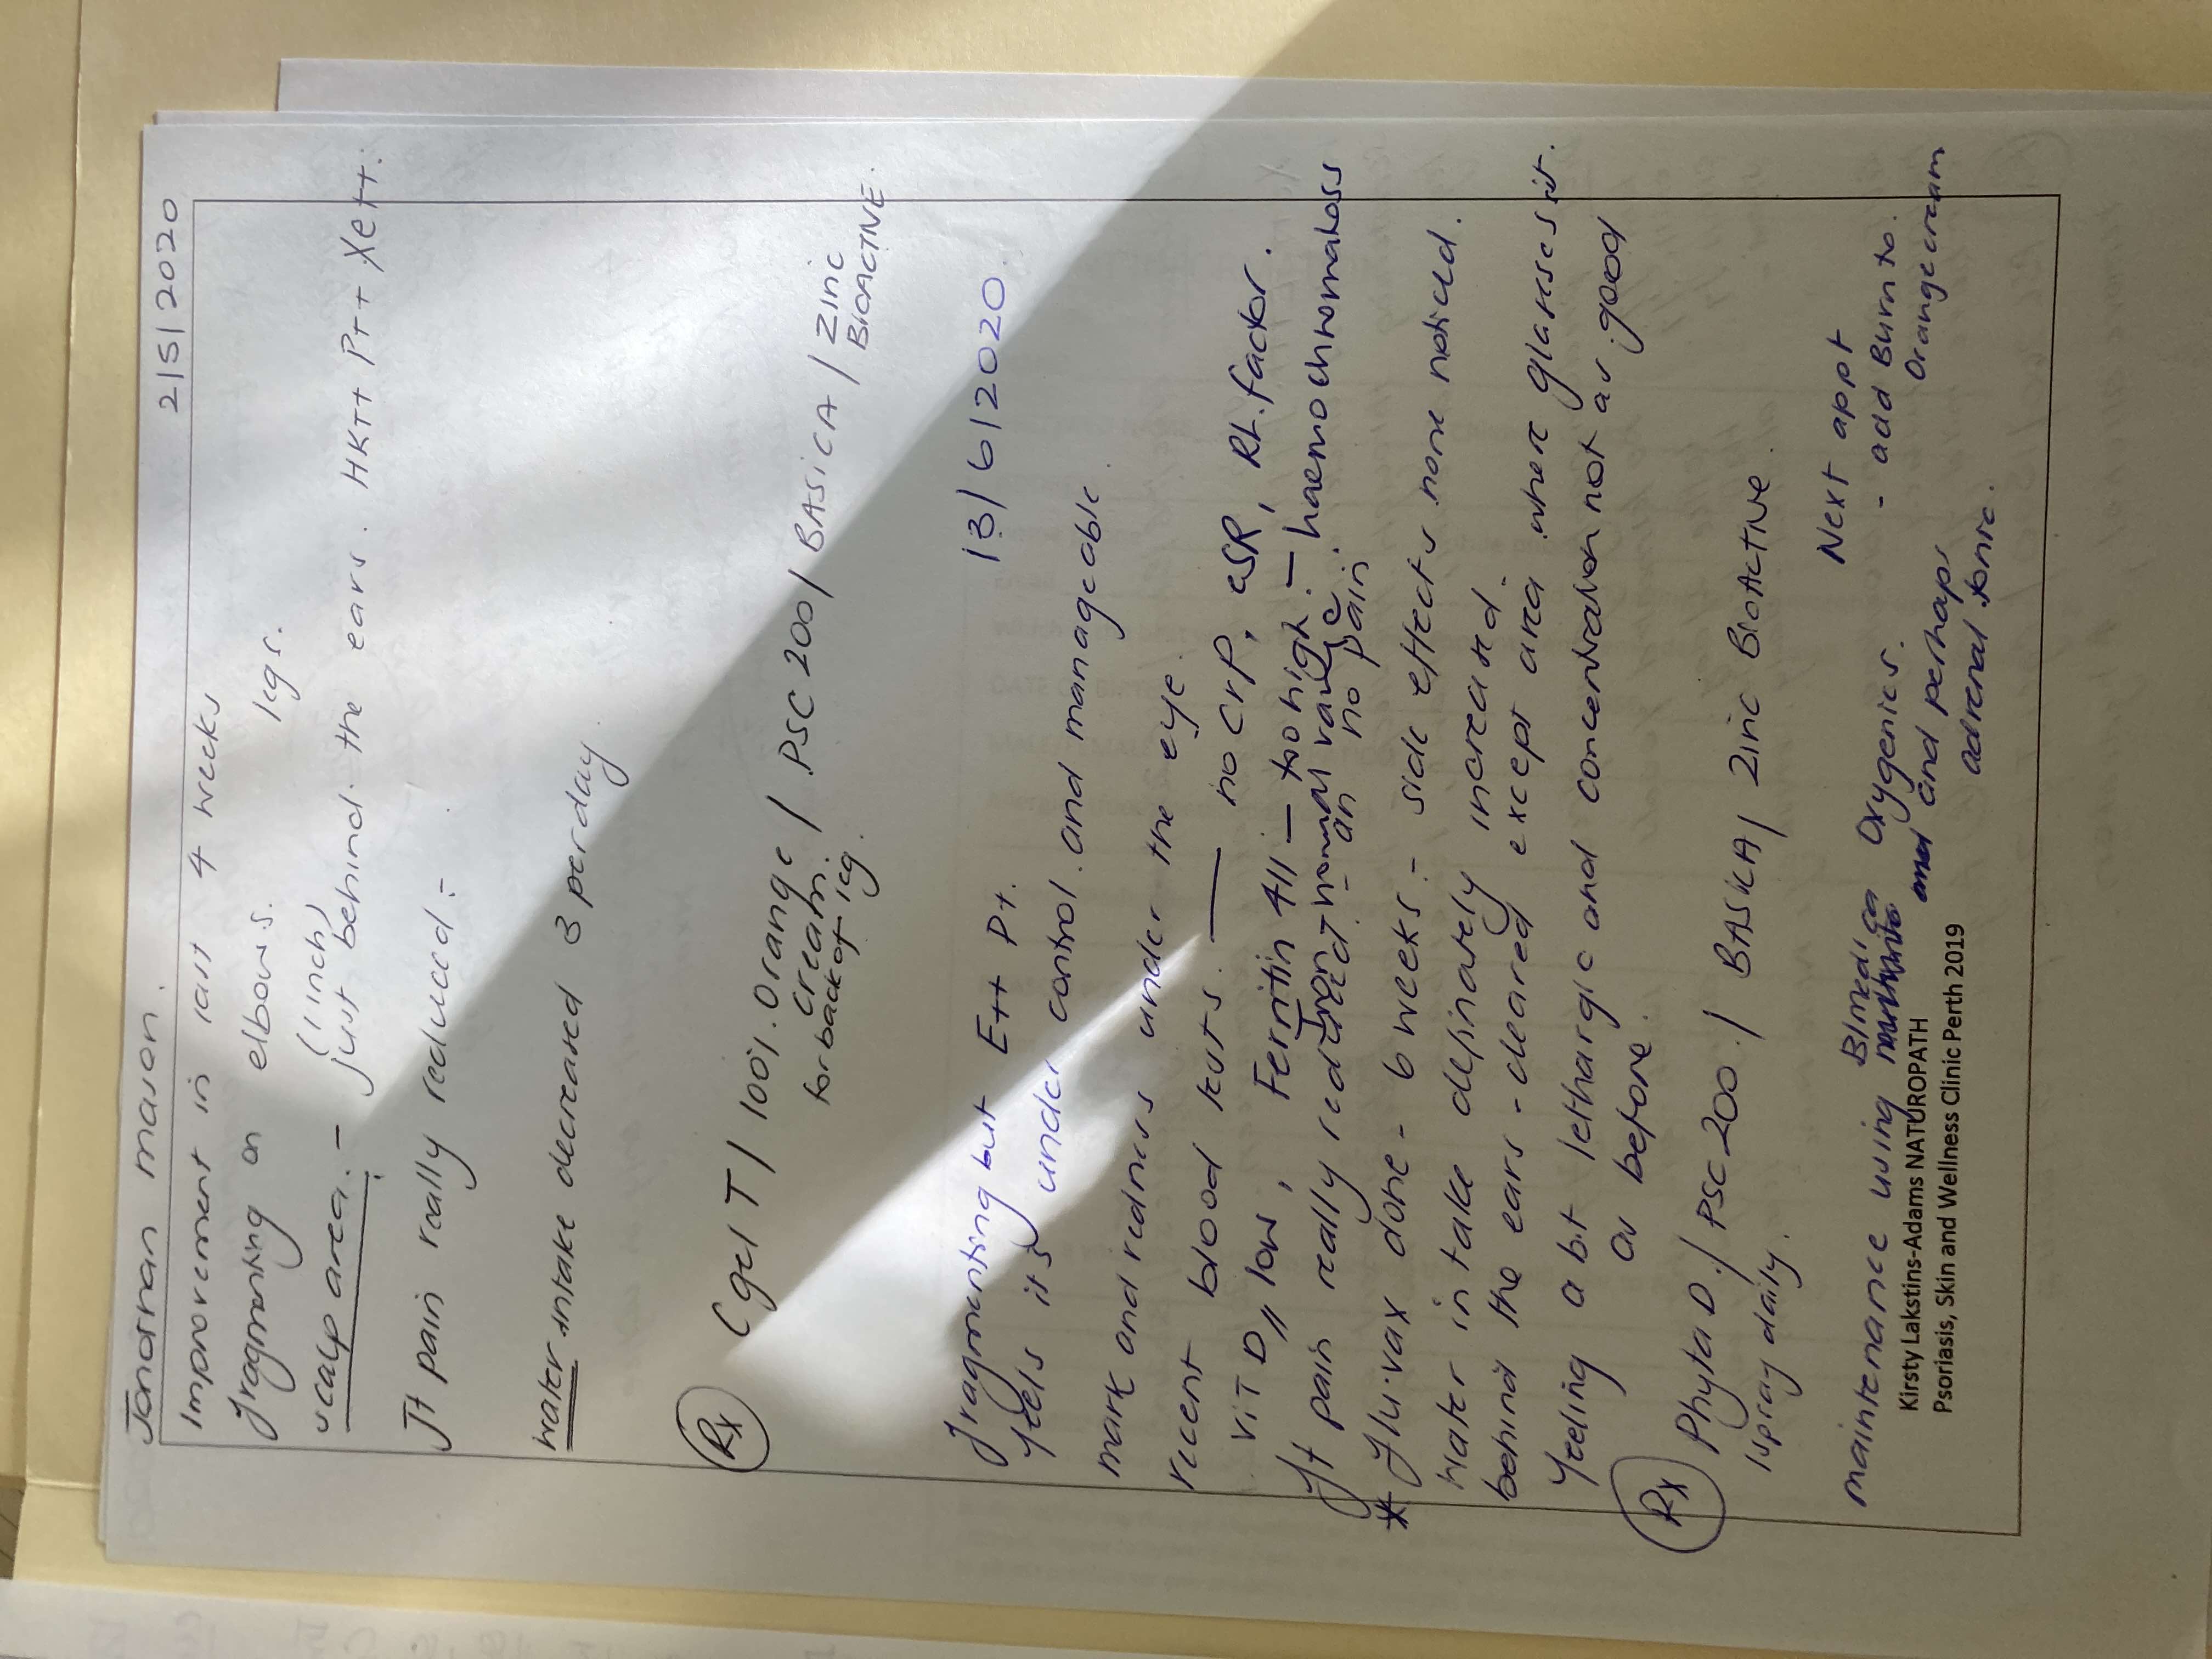 Jonathan mason. 2/5/2020
Improvement in last 4 weeks
fragmenting on elbows. legs.
scalp area. - (1 inch)
just behind the ears. HK++ P++ Xe++.
Jt pain really reduced -
water intake decreased 3 per day
Rx C gel T / 100% Orange cream. / PSC 200 / BASICA / Zinc BIOACTIVE.
for back of leg.
13/6/2020
fragmenting but E++ P+.
feels its under control. and manageable.
mark and redness under the eye.
recent blood tests. — no CrP, eSR, Rh. factor.
VIT D low, Ferritin 411 — too high. — haemochromatoss
Iron normal range.
Jt pain really reduced - an no pain.
* Flu-vax done - 6 weeks. - side effects none noticed.
Water in take definately increased.
behind the ears - cleared except area where glasses sit.
Feeling a bit lethargic and concentration not as good
as before.
Rx Phyta D. / PSC 200. / BASICA / Zinc BIOACTIVE.
1 spray daily.
maintenance using Oxygenics.
and perhaps
adrenal tonic.
Next appt
- add Burn to
Orange cream
Kirsty Lakstins-Adams NATUROPATH
Psoriasis, Skin and Wellness Clinic Perth 2019